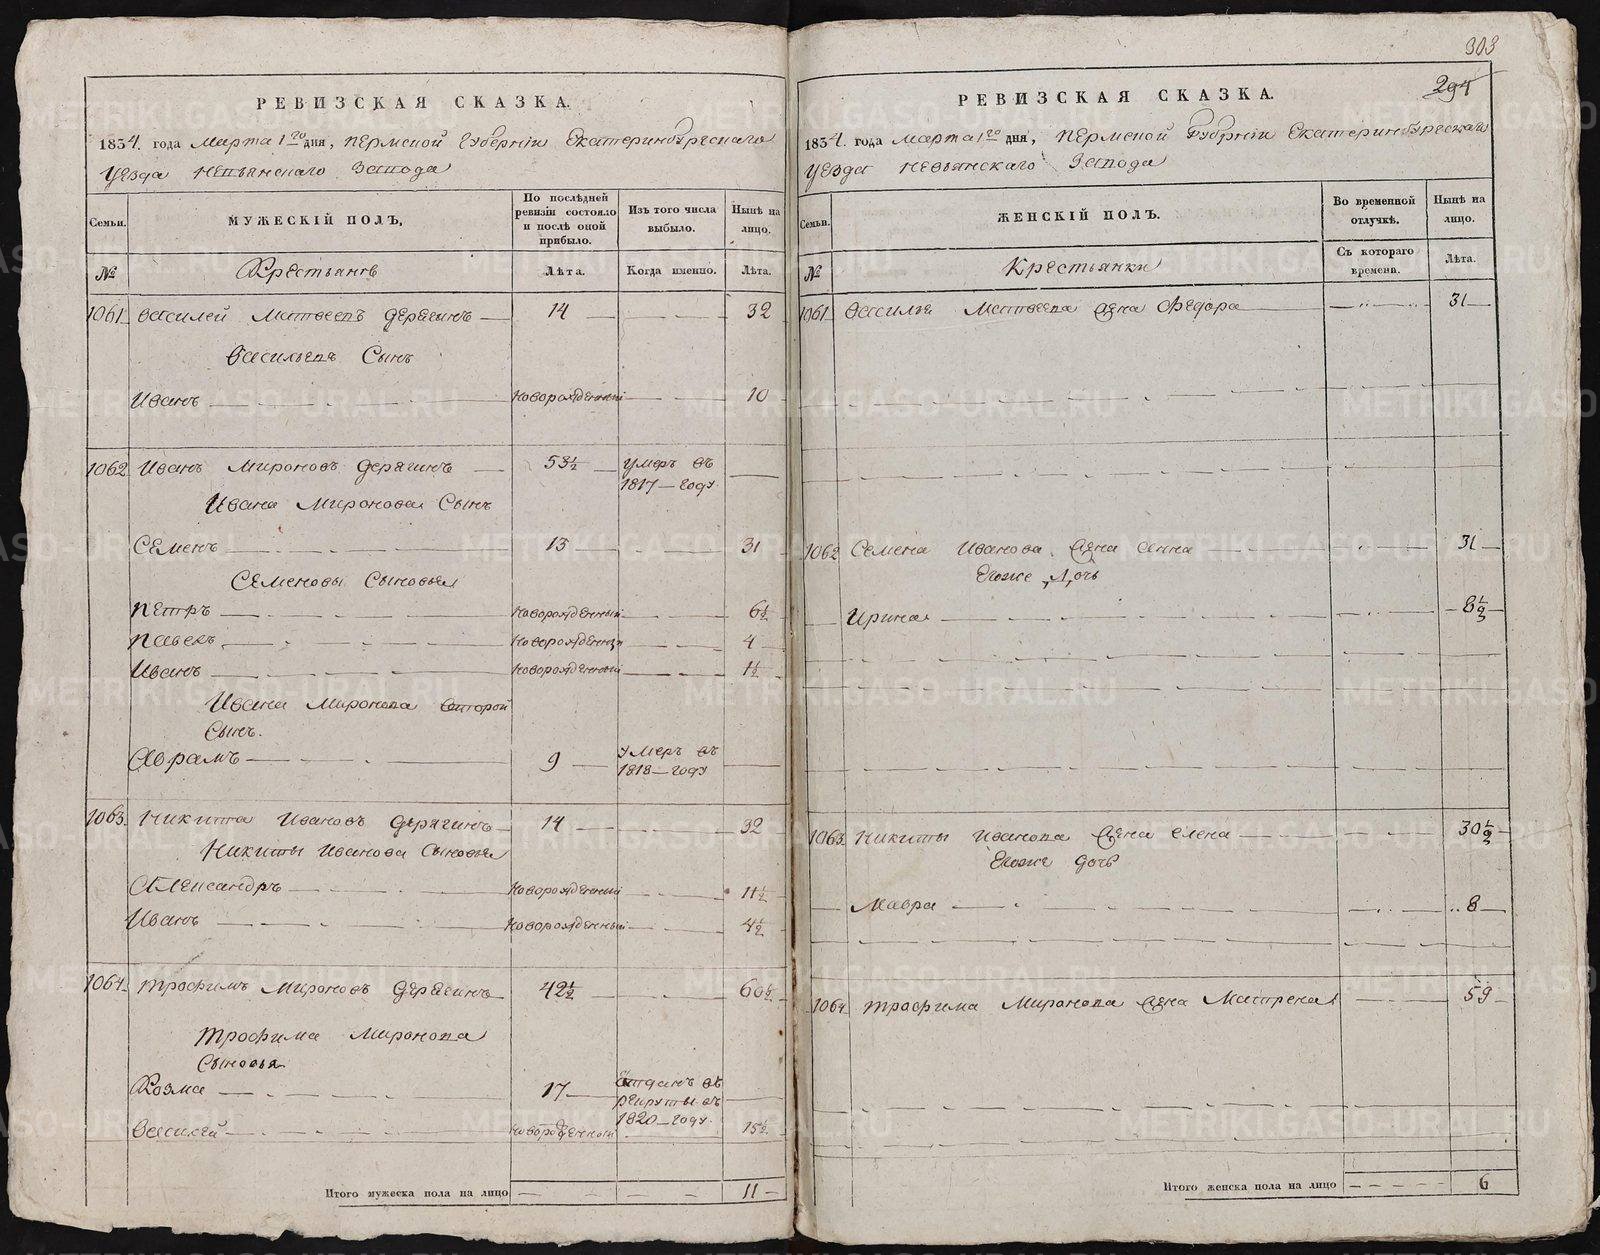 РЕВИЗСКАЯ СКАЗКА.
1834. года Марта 1го дня, Пермской Губернiи Екатеринбургскаго
уезда Невьянскаго Завода
Семьи.
МУЖЕСКIЙ ПОЛЪ,
По послѣдней ревизiи состояло и послѣ оной прибыло.
Изъ того числа выбыло.
Нынѣ на лицо.
№
Крестьянъ
Лѣта.
Когда именно.
Лѣта.
1061 Василей Матвеевъ Дерягинъ 14 32
Васильевъ Сынъ
Иванъ новорожденный 10
1062 Иванъ Мироновъ Дерягинъ 53½ умеръ въ 1817 году.
Ивана Миронова Сынъ
Семенъ 13 31
Семеновы Сыновья
Петръ новорожденный 6½
Павелъ новорожденный 4
Иванъ новорожденный 1½
Ивана Миронова второй
Сынъ.
Аврамъ 9 умеръ въ 1818 году
1063. Никита Ивановъ Дерягинъ 14 32
Никиты Иванова Сыновья
Александръ новорожденный 11½
Иванъ новорожденный 4½
1064. Трофимъ Мироновъ Дерягинъ 42½ 60½
Трофима Миронова
Сыновья
Козма 17 Отданъ въ рекруты въ 1820 году.
Василей новорожденный 15½
Итого мужеска пола на лицо 11
303
294
РЕВИЗСКАЯ СКАЗКА.
1834. года Марта 1го дня, Пермской Губернiи Екатеринбургскаго
уезда Невьянскаго Завода
Семьи.
ЖЕНСКIЙ ПОЛЪ.
Во временной отлучкѣ.
Нынѣ на лицо.
№
Крестьянки
Съ котораго времени.
Лѣта.
1061 Василья Матвеева жена Федора 31
1062 Семена Иванова жена Анна 31
Егоже Дочь
Ирина 8½
1063 Никиты Иванова жена Елена 30½
Егоже дочь
Мавра 8
1064 Трофима Миронова жена Мастрена 59
Итого женска пола на лицо 6
METRIKI.GASO-URAL.RU